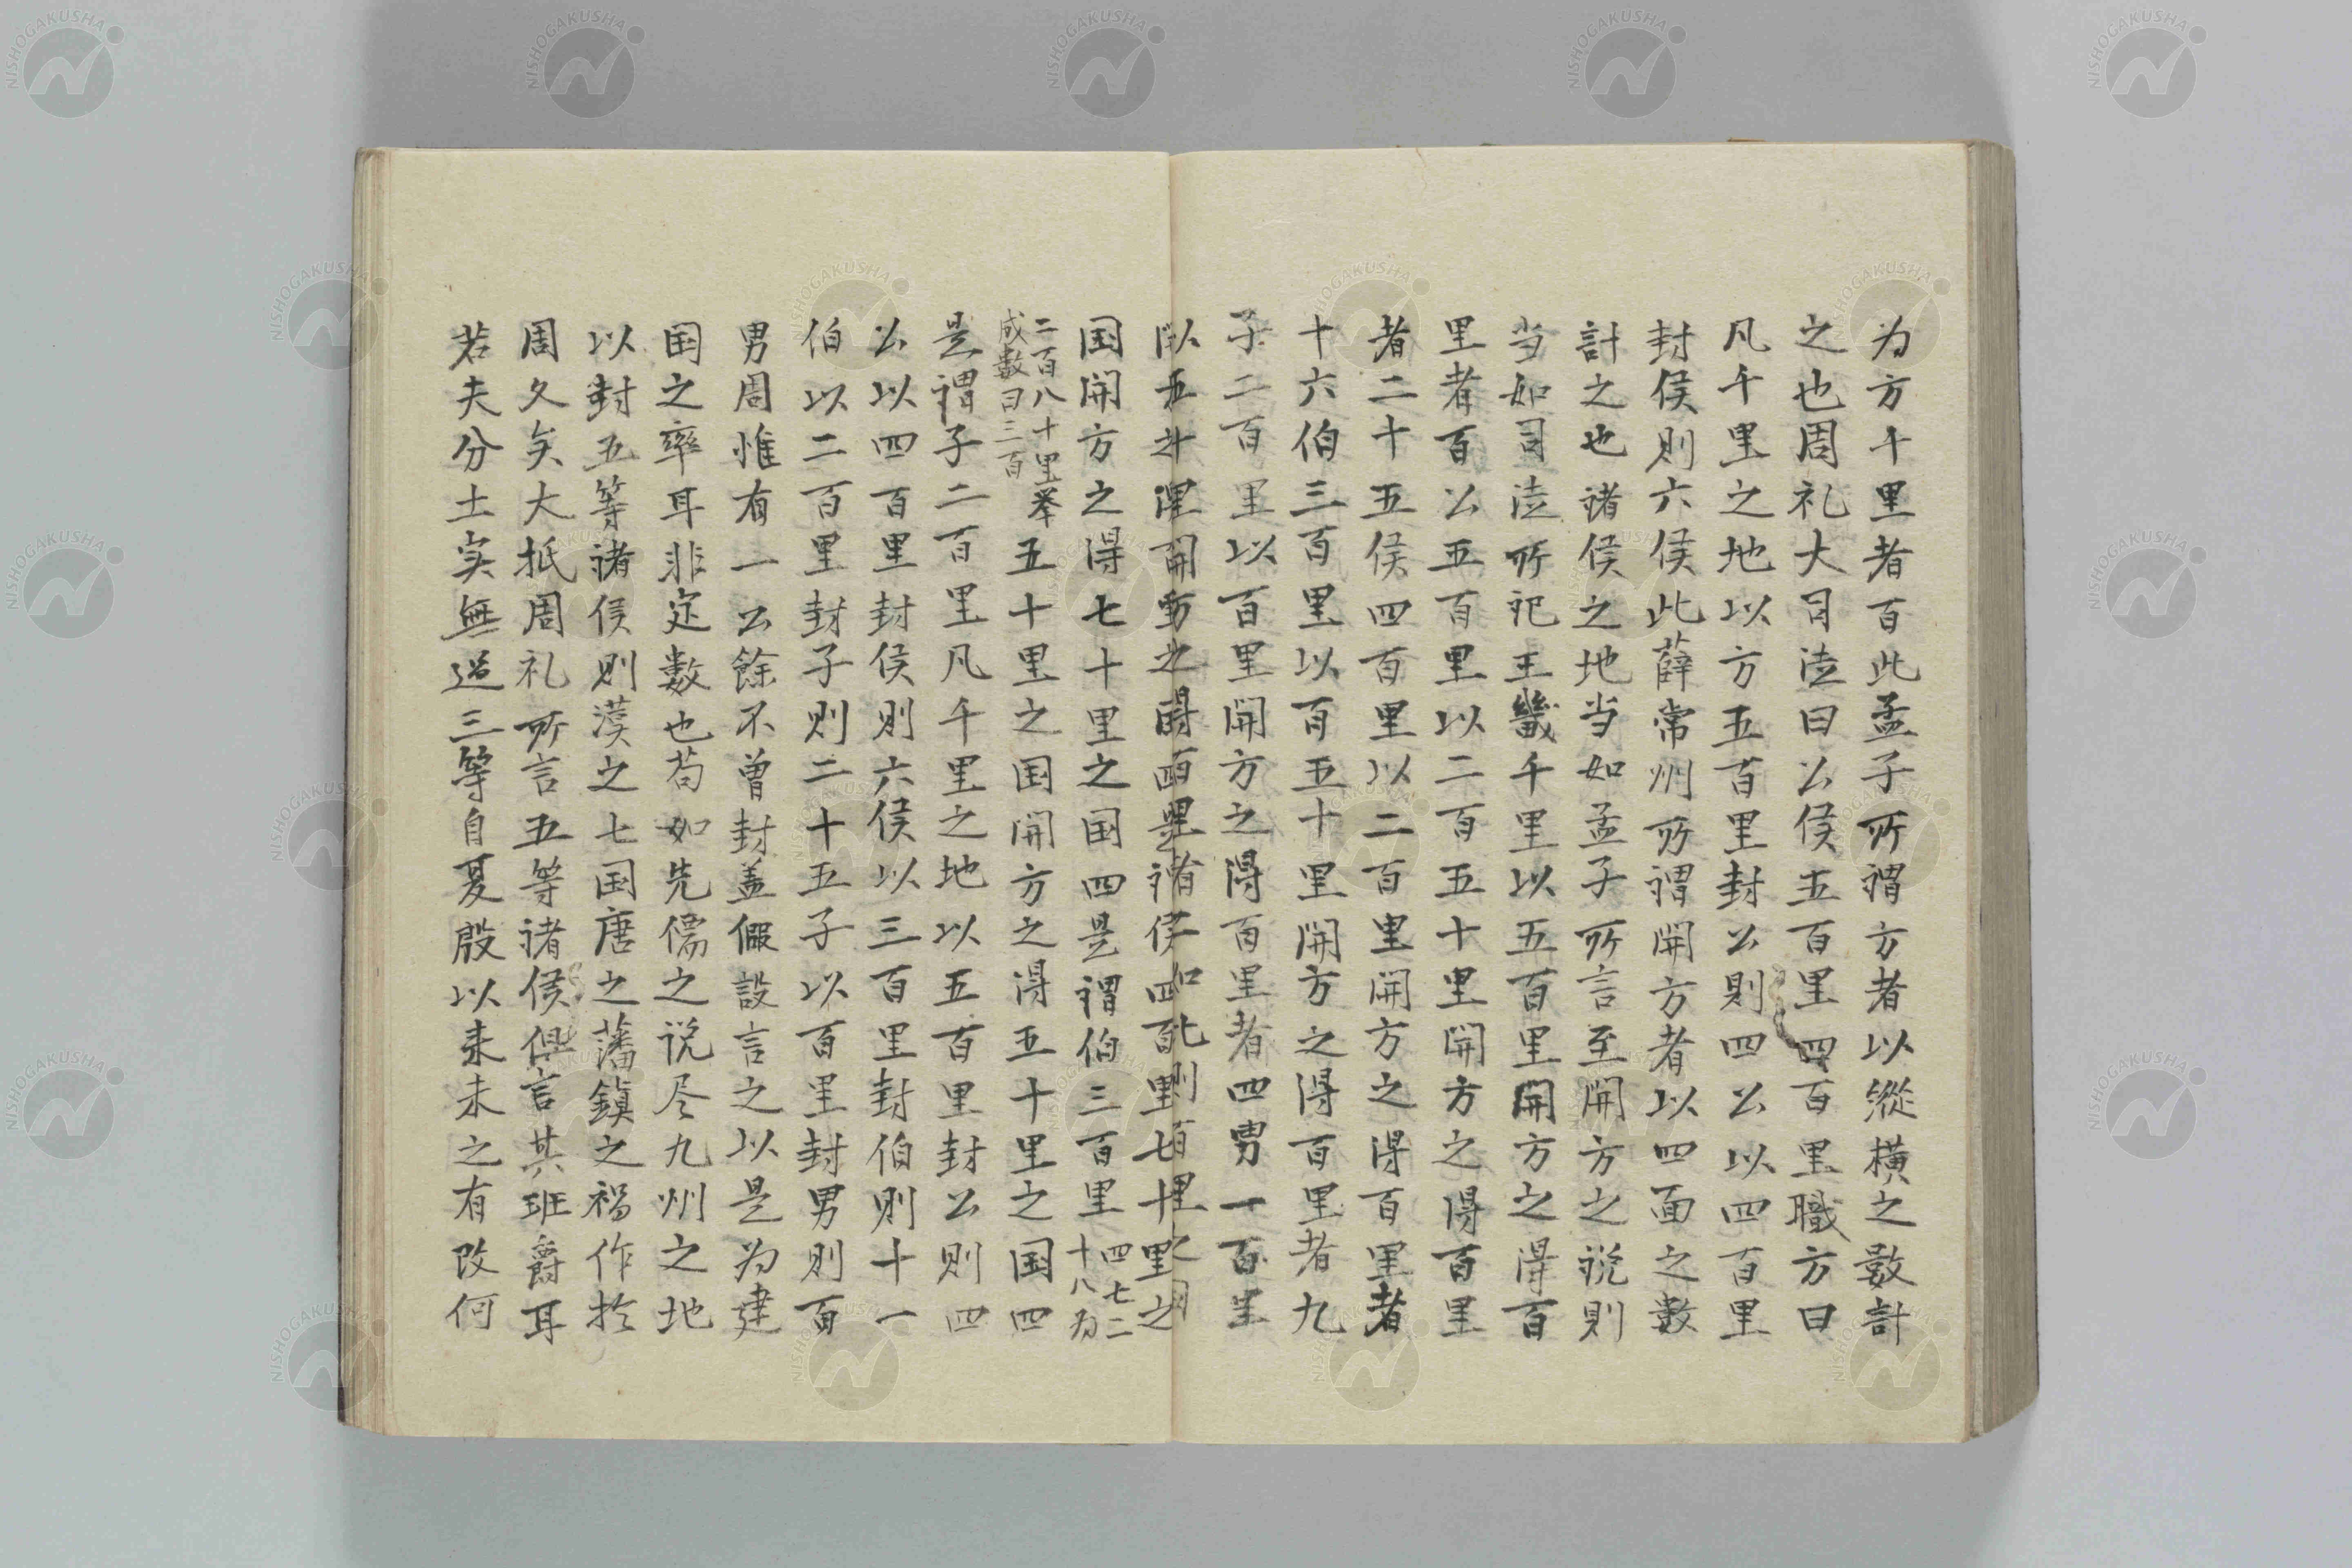 为方千里者百此孟子所謂方者以縱横之數計
之也周礼大司徒曰公侯五百里四百里職方曰
凡千里之地以方五百里封公則四公以四百里
封侯則六侯此薛常州所謂開方者以四面之數
計之也諸侯之地当如孟子所言至開方之説則
当如司徒所祀王畿千里以五百里開方之得百
里者百公五百里以二百五十里開方之得百里
者二十五侯四百里以二百里開方之得百里者
十六伯三百里以百五十里開方之得百里者九
子二百里以百里開方之得百里者四男一百里
四百里七十里之
国開方之得七十里之国四是謂伯三百里四七二
十八为
二百八十里举
成數曰三百
五十里之国開方之得五十里之国四
是謂子二百里凡千里之地以五百里封公則四
公以四百里封侯則六侯以三百里封伯則十一
伯以二百里封子則二十五子以百里封男則百
男周惟有一公餘不曾封盖假設言之以是为建
国之率耳非定數也苟如先儒之説尽九州之地
以封五等諸侯則漢之七国唐之藩鎮之禍作於
周久矣大抵周礼所言五等諸侯俱言其班爵耳
若夫分土実無過三等自夏殷以来未之有改何
NISHOGAKUSHA